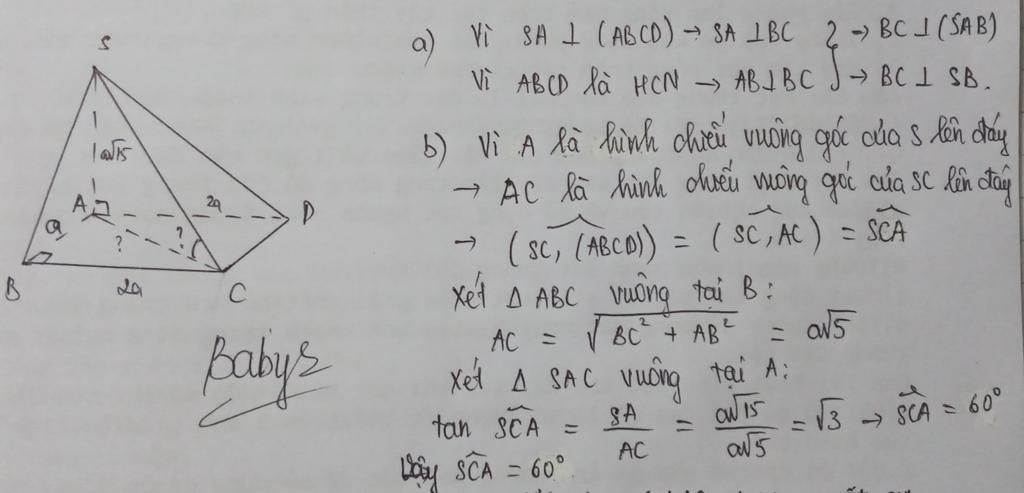 S
a√15
A
2a
D
a
?
?
B
2a
C
Babys
a) Vì SA ⊥ (ABCD) → SA ⊥ BC } → BC ⊥ (SAB)
Vì ABCD là HCN → AB ⊥ BC } → BC ⊥ SB.
b) Vì A là hình chiếu vuông góc của S lên đáy
→ AC là hình chiếu vuông góc của SC lên đáy
→ (SC, (ABCD)) = (SC, AC) = SCA
Xét Δ ABC vuông tại B:
AC = √(BC² + AB²) = a√5
Xét Δ SAC vuông tại A:
tan SCA = SA/AC = a√15/a√5 = √3 → SCA = 60°
Vậy SCA = 60°